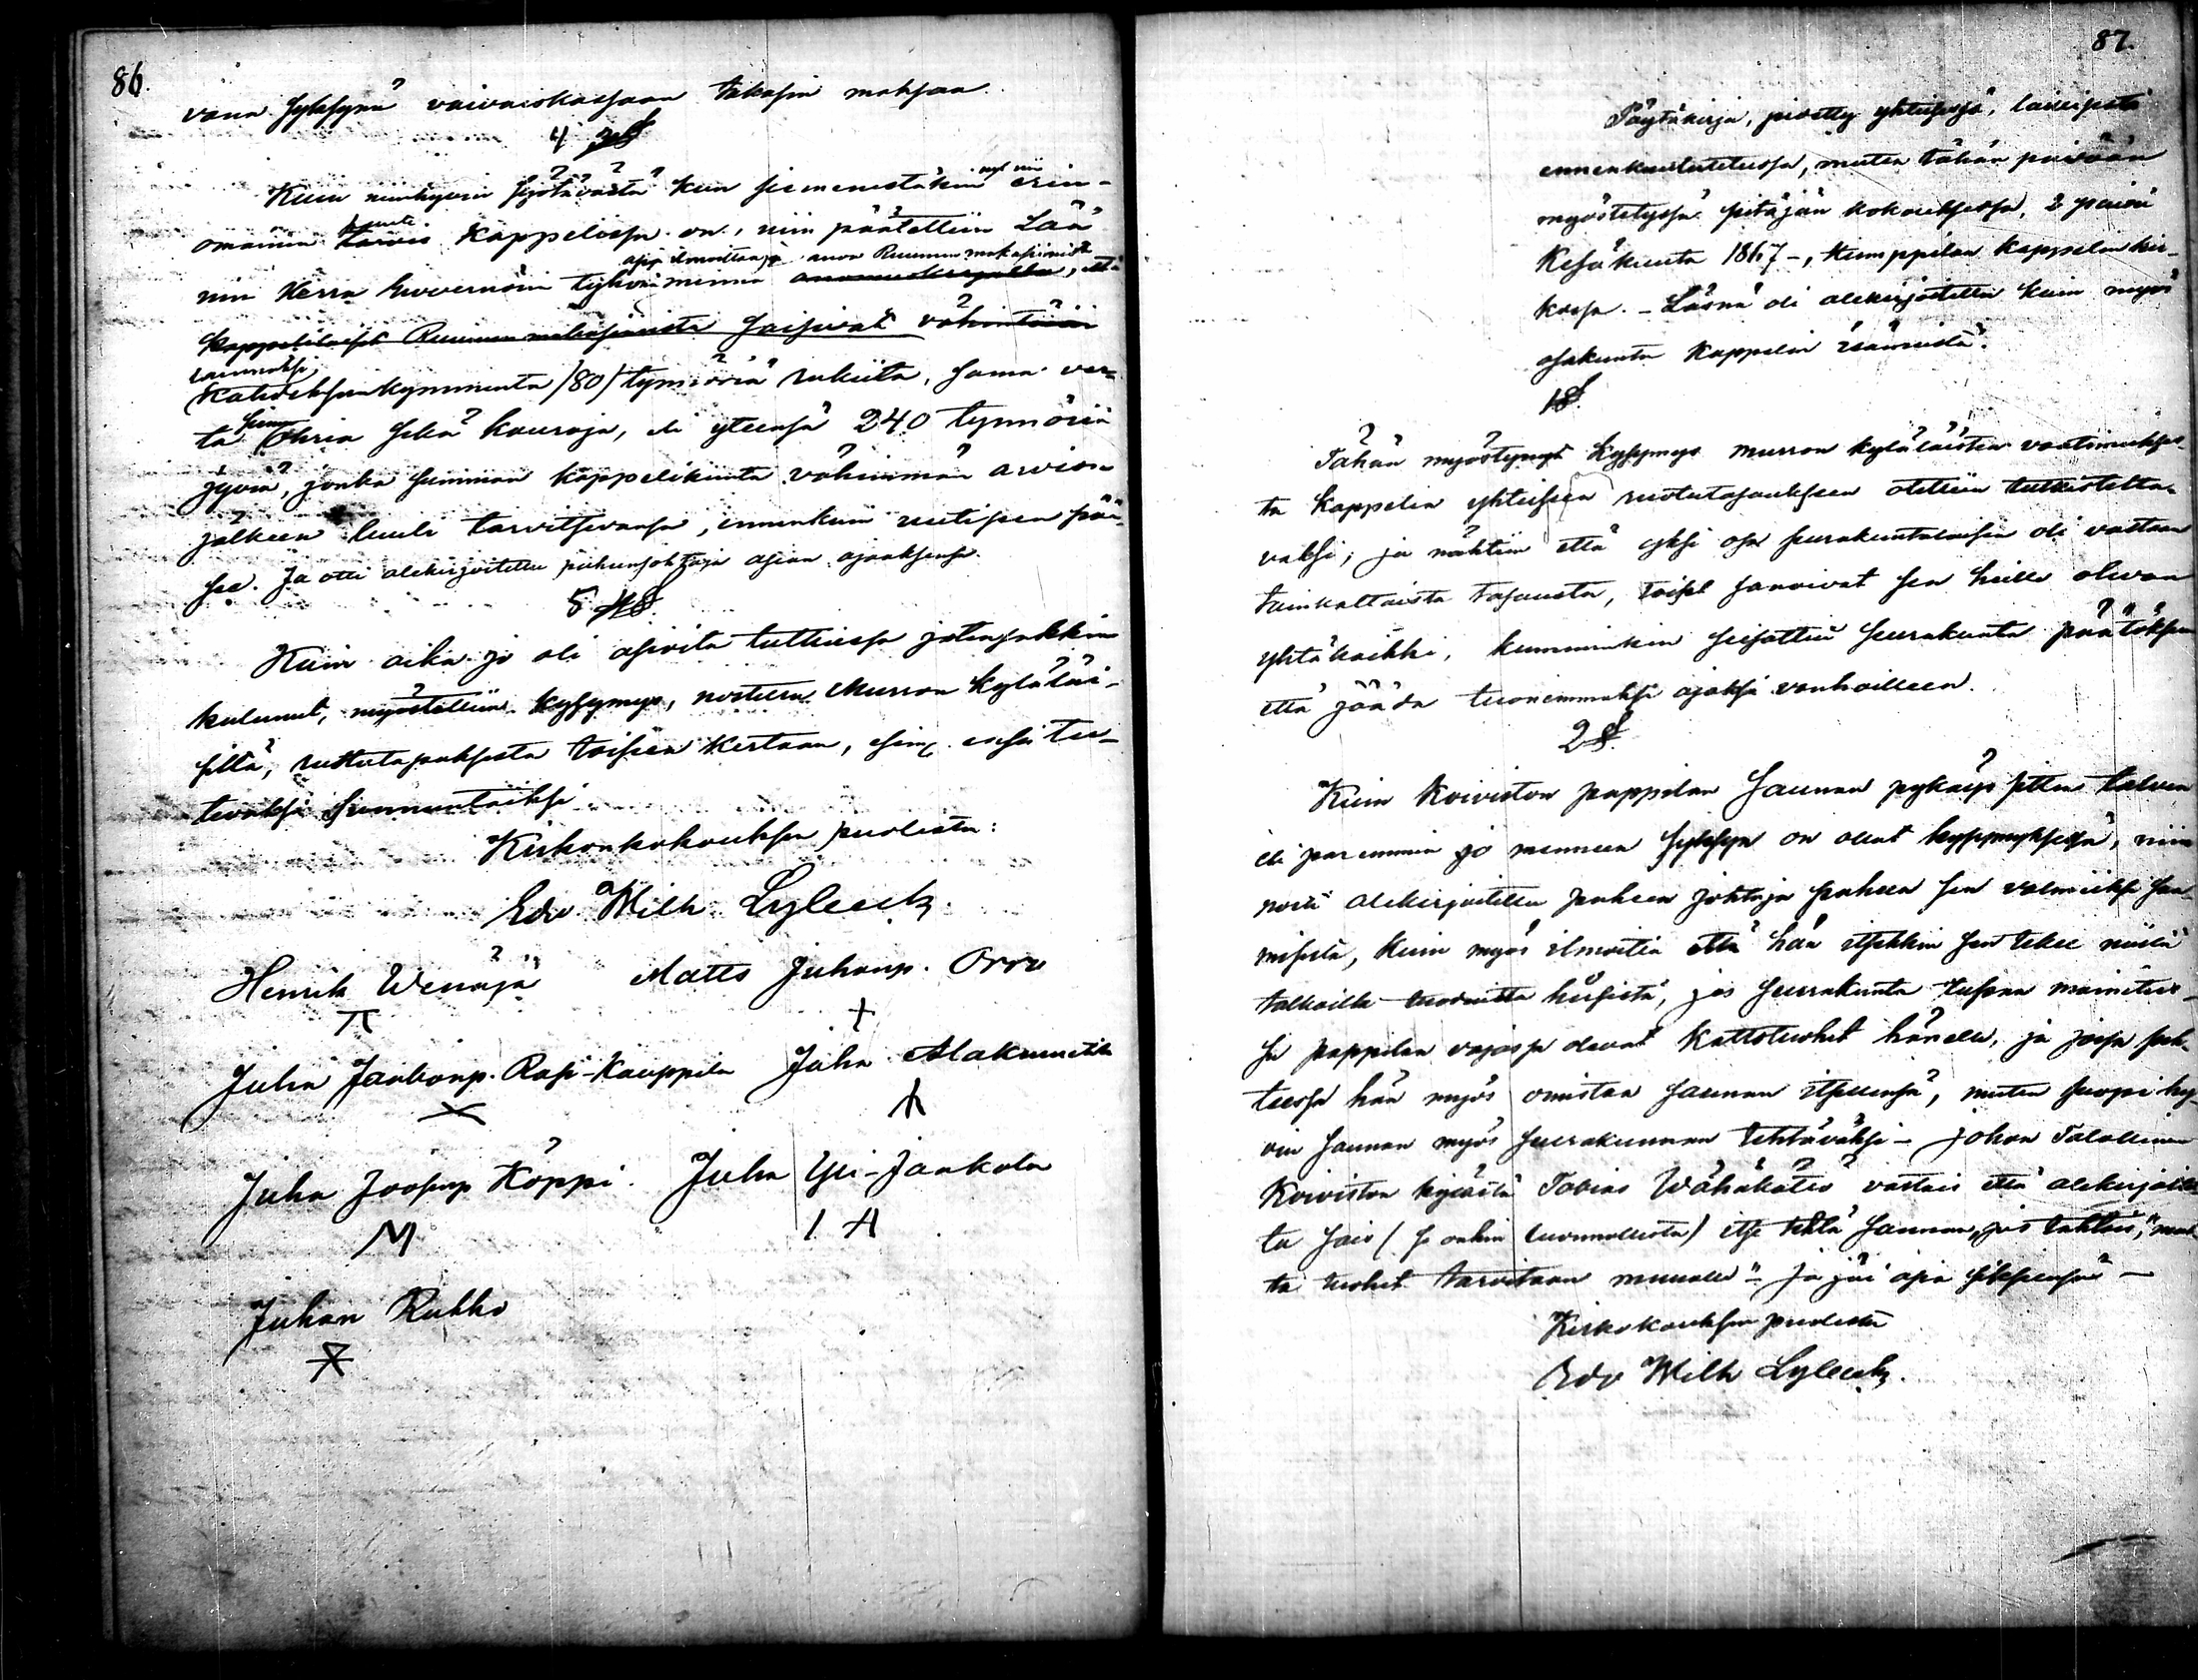 86.
vana syksynä vaivaiskassaan takasin maksaa.
4 3§
Kuin niinhyvin syötävästä kun siemenestäkin nyt niin erin-
omainen puute tarvis kappelissa on, niin päätettiin Lää-
nin Herra Guvernöörin tykönä minua asia ilmoittaa ja anoa Ruunun makasiinista anomuskirjalla, että
kappelilaiset Ruunun makasiinista saisivat vähintäin
lainaksi kahdeksankymmentä /80/ tynnöriä rukiita, sama ver-
ta siemen Ohria sekä kauroja, eli yteensä 240 tynnöriä
jyviä, jonka summan kappelikunta vähimmän arvion
jälkeen luuli tarvitsevansa, ennenkuin uutiseen pää-
see. Ja otti alekirjoitettu puhunjohtaja asian ajaaksensa.
5 4§
Kuin aika jo oli asioita tuttkiessa jotenjakkin
kulunut, myöstettiin kysymys, nostettu Murron kyläläi-
siltä, ruttutasauksesta toiseen kertaan, ensi tu-
tevaksi sunnuntaiksi
Kirkonkokouksen puolesta:
Edv Wilh Lyleeck.
Henrik Wenäjä Matts Juhanp. Orre
Juha Jaakonp. Rasi-Kauppila Juha Alakunttila
Juha Joosepp Köppi. Juha Yli-Jaakola
Juhan Rukko
87.
Pöytäkirja, pidetty yhteisessä, laillisesti
ennenkuulutetussa, mutta tähän päivään
myöstetyssä pitäjän kokouksessa, 2 päivä
Kesäkuuta 1867 -, Kumppilan kappelin kir-
kossa. - Läsnä oli alekirjoitettu kuin myös
osakunta kappelin isännistä.
1§.
Tähän myöstynyt kysymys Murron kyläläisten vaatimukses-
ta kappelin yhteiseen ruotutasaukseen otettiin tutkisteltta-
vaksi; ja nähtiin että yksi osa seurakuntalaisia oli vastaan
tainkaltaista tasausta, toiset sanoivat sen heille olevan
yhtäkaikki, kumminkin seisattui seurakunta päätöksen
että jäädä tuonemmaksi ajaksi vanhoilleen.
2§.
Kuin Koiviston pappilan Saunan pykäys sitten talven
eli paremmin jo menneen syksyn on ollut kysymyksessä, niin
nosti alekirjoitettu puheen johtaja puheen sen valmiiksi saa-
misesta, kuin myös ilmoitti että hän itsekkin sen tekee niistä
talkoilla tuoduista hirsistä, jos Seurakunta lupaa mainitus-
sa pappilan vajassa olevat kattotuohet hänelle, ja jossa suh-
teessa hän myös omistaa saunan itsellensä, mutta suopi hy-
vin saunan myös seurakunnan tehtäväksi - johon Talollinen
Koiviston kylästä Tobias Wähäkätiö vastais että alekirjoite-
tu sais (se onkin luonnollista) itse tehdä saunan, jos tahtois, "mut-
ta tuohet tarvitaan muualle" - Ja jäi asia siksensä -
Kirkokouksen puolesta
Edv Wilh Lyleeck.